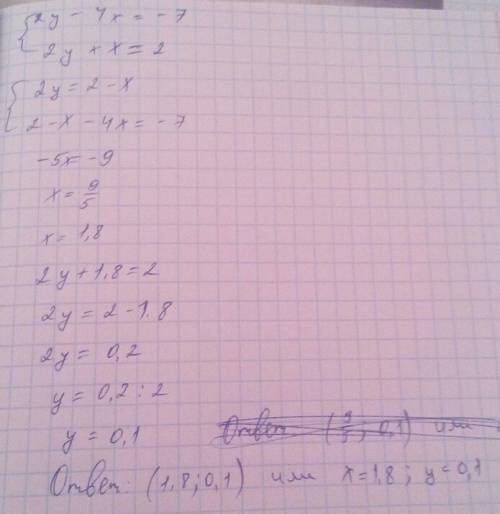 2y - 4x = -7
2y + x = 2
2y = 2 - x
2 - x - 4x = -7
-5x = -9
x = 9/5
x = 1,8
2y + 1,8 = 2
2y = 2 - 1.8
2y = 0,2
y = 0,2 : 2
y = 0,1
Ответ (9/5; 0,1) или
Ответ: (1,8; 0,1) или x=1,8; y=0,1